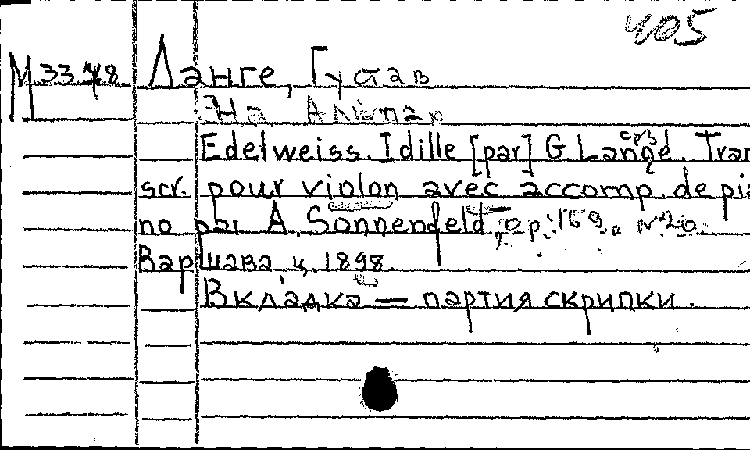 405
М 33.48 Ланге, Густав
На Альпах
Edelweiss. Idille [par] G. Lange. Tran
scr. pour violon avec accomp. de pia
no par A. Sonnenfeld, op. 169.
Варшава ц. 1898.
Вкладка — партия скрипки.